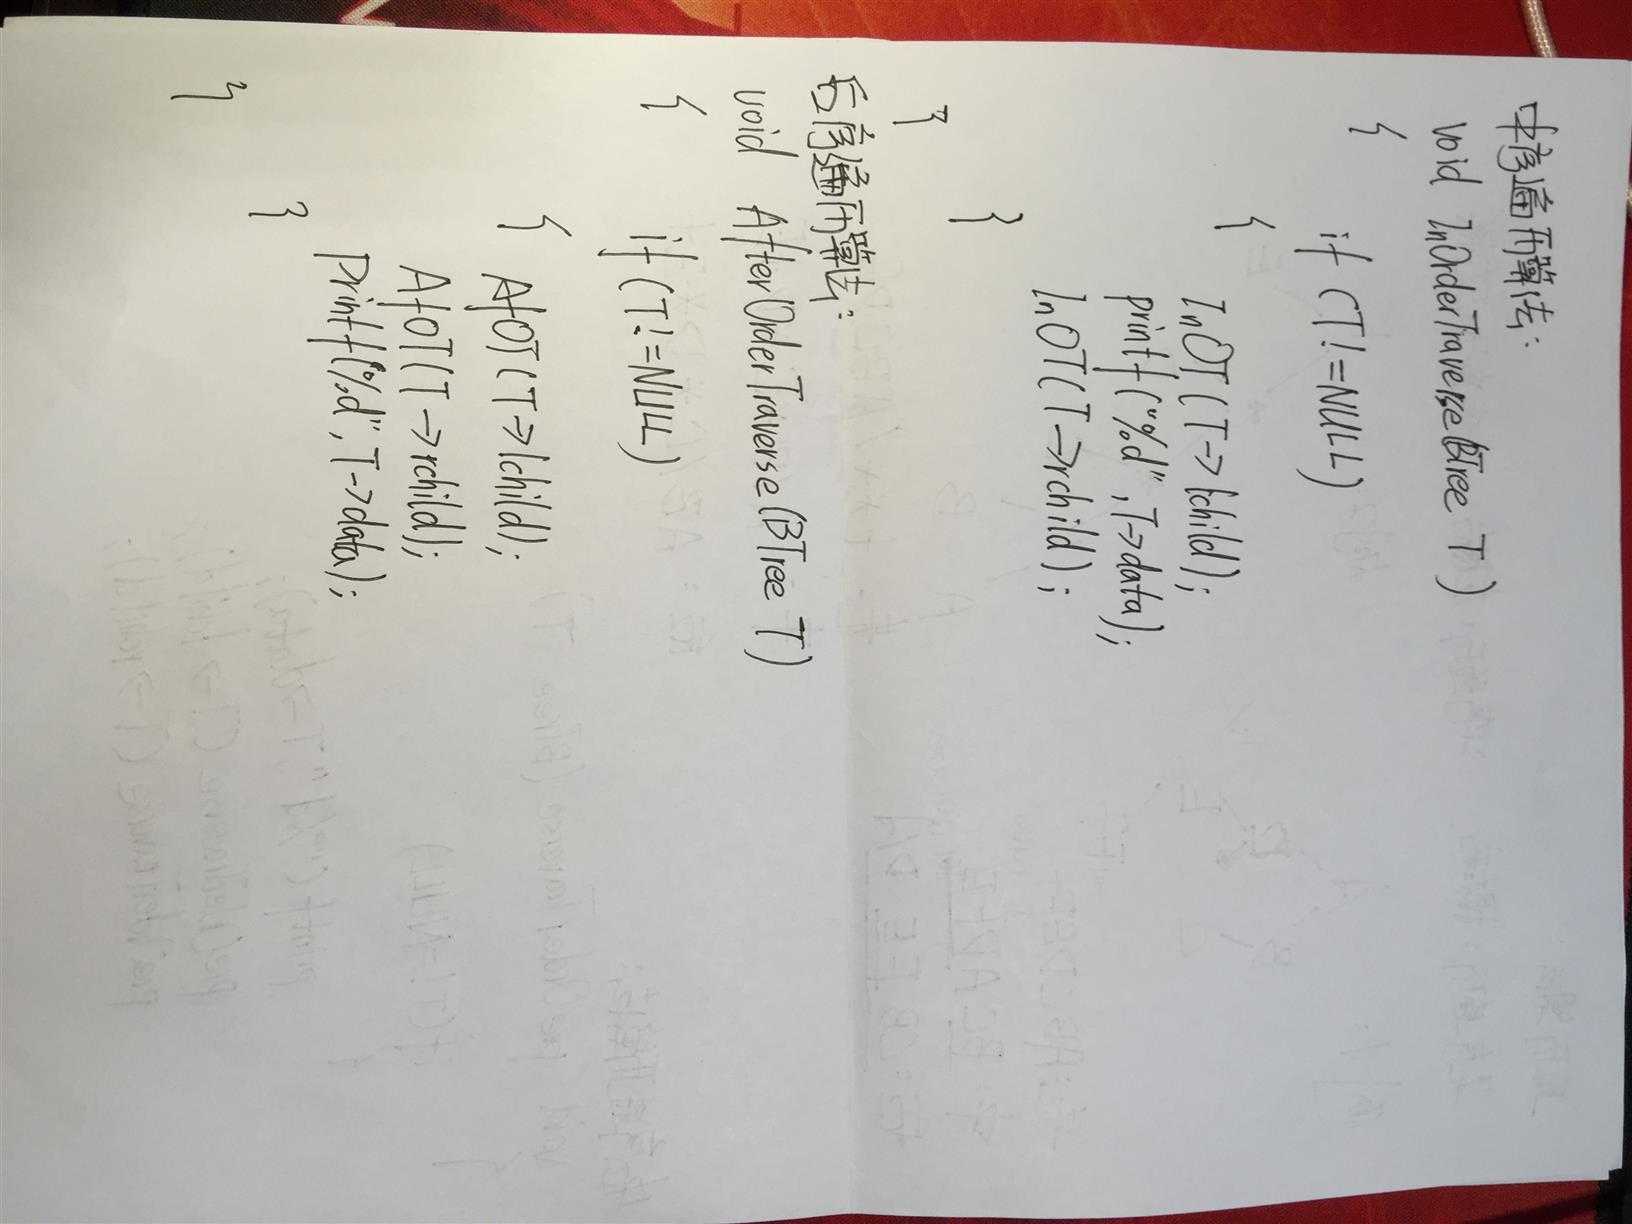 中序遍历算法：
void InOrderTraverse(BTree T)
{
if (T!=NULL)
{
InOT(T->lchild);
printf("%d",T->data);
InOT(T->rchild);
}
}
后序遍历算法：
void AfterOrderTraverse(BTree T)
{
if(T!=NULL)
{
AfOT(T->lchild);
AfOT(T->rchild);
Printf("%d",T->data);
}
}